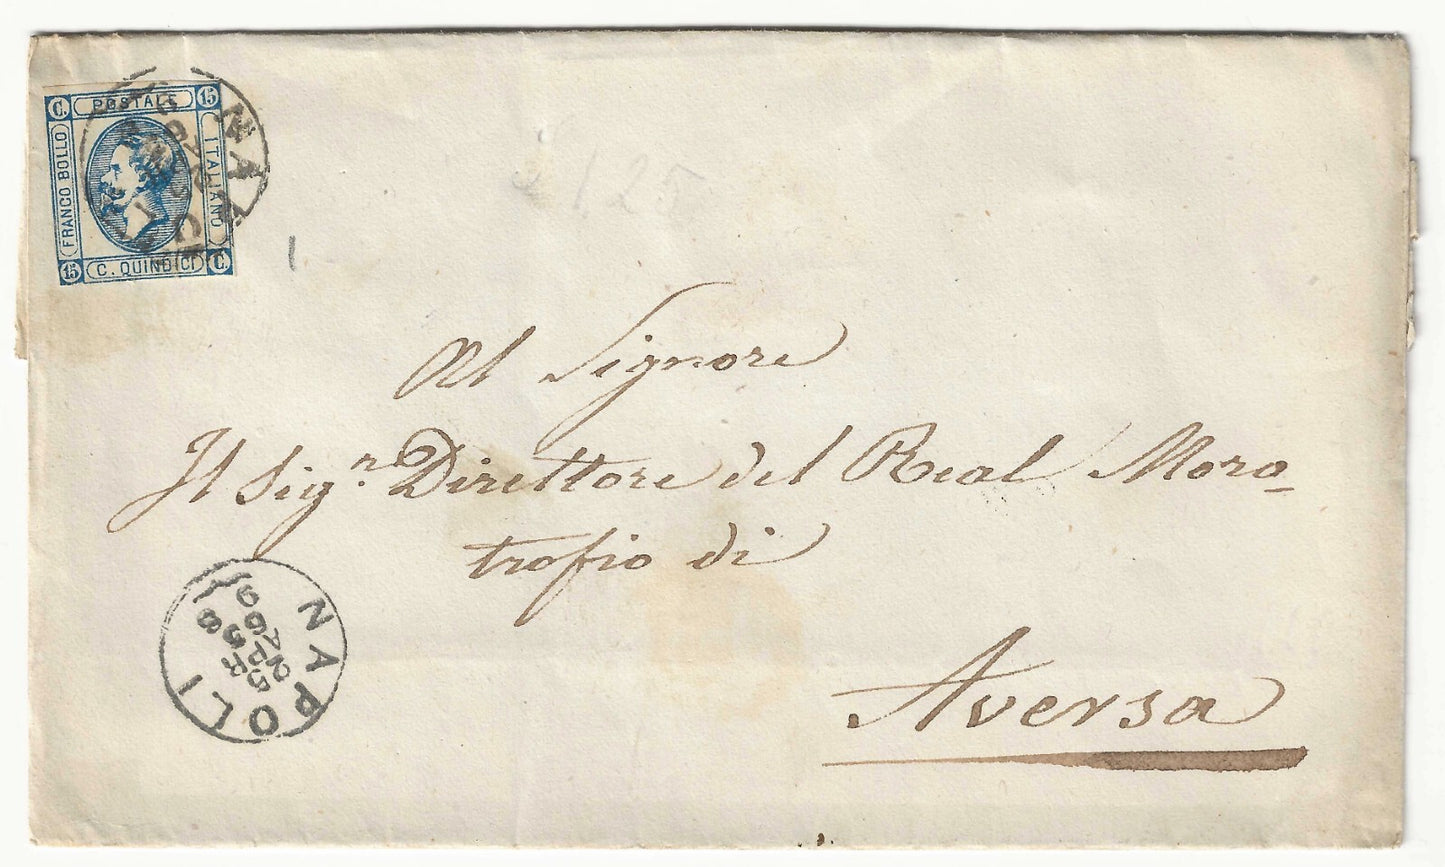 C. POSTALE 15
FRANCO BOLLO
ITALIANO
15 C. QUINDICI C.
NA
125
Al Signore
Il Sig.r Direttore del Real Moro-
trofio di
Aversa
NAPOLI